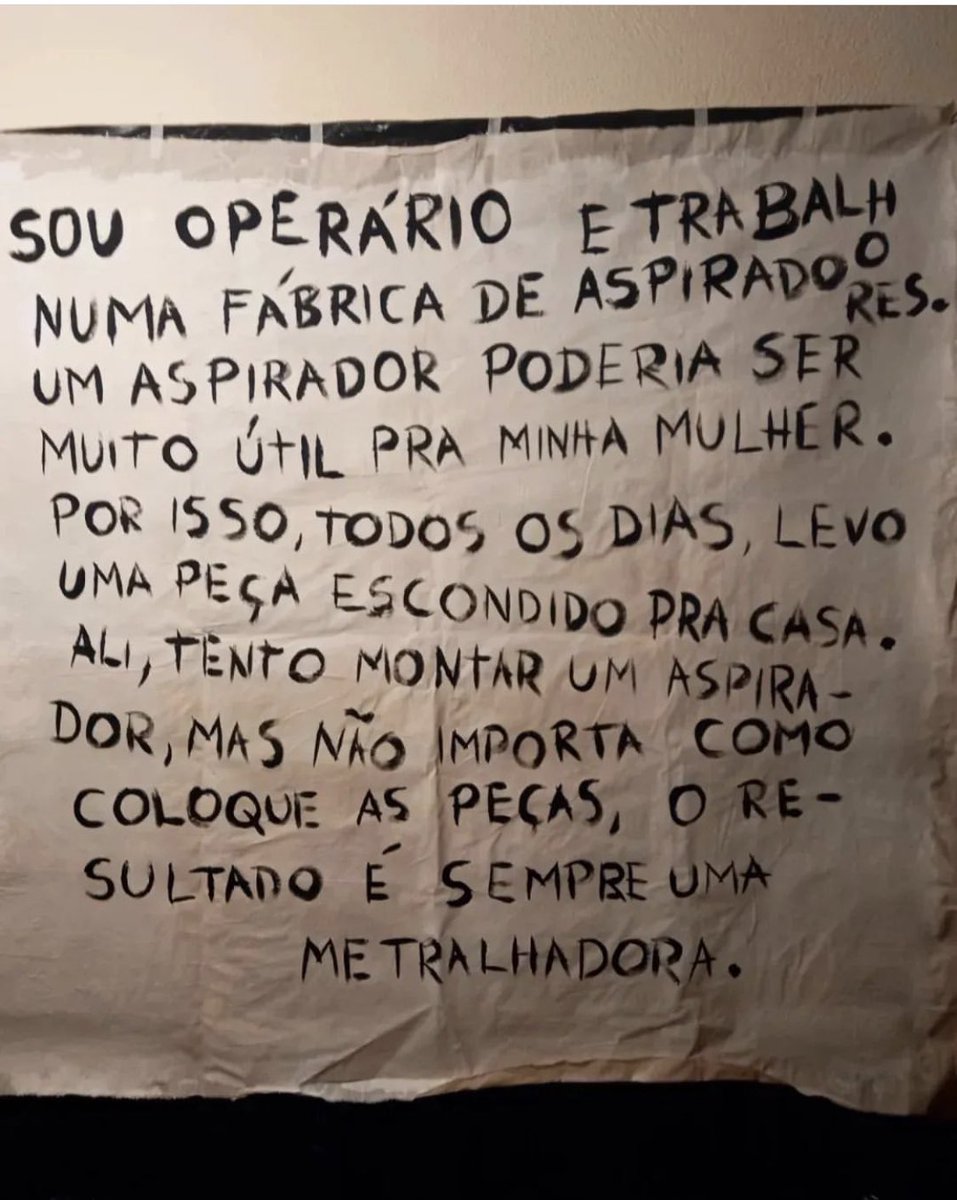 SOU OPERÁRIO E TRABALHO
NUMA FÁBRICA DE ASPIRADORES.
UM ASPIRADOR PODERIA SER
MUITO ÚTIL PRA MINHA MULHER.
POR ISSO, TODOS OS DIAS, LEVO
UMA PEÇA ESCONDIDO PRA CASA.
ALI, TENTO MONTAR UM ASPIRA-
DOR, MAS NÃO IMPORTA COMO
COLOQUE AS PEÇAS, O RE-
SULTADO É SEMPRE UMA
METRALHADORA.